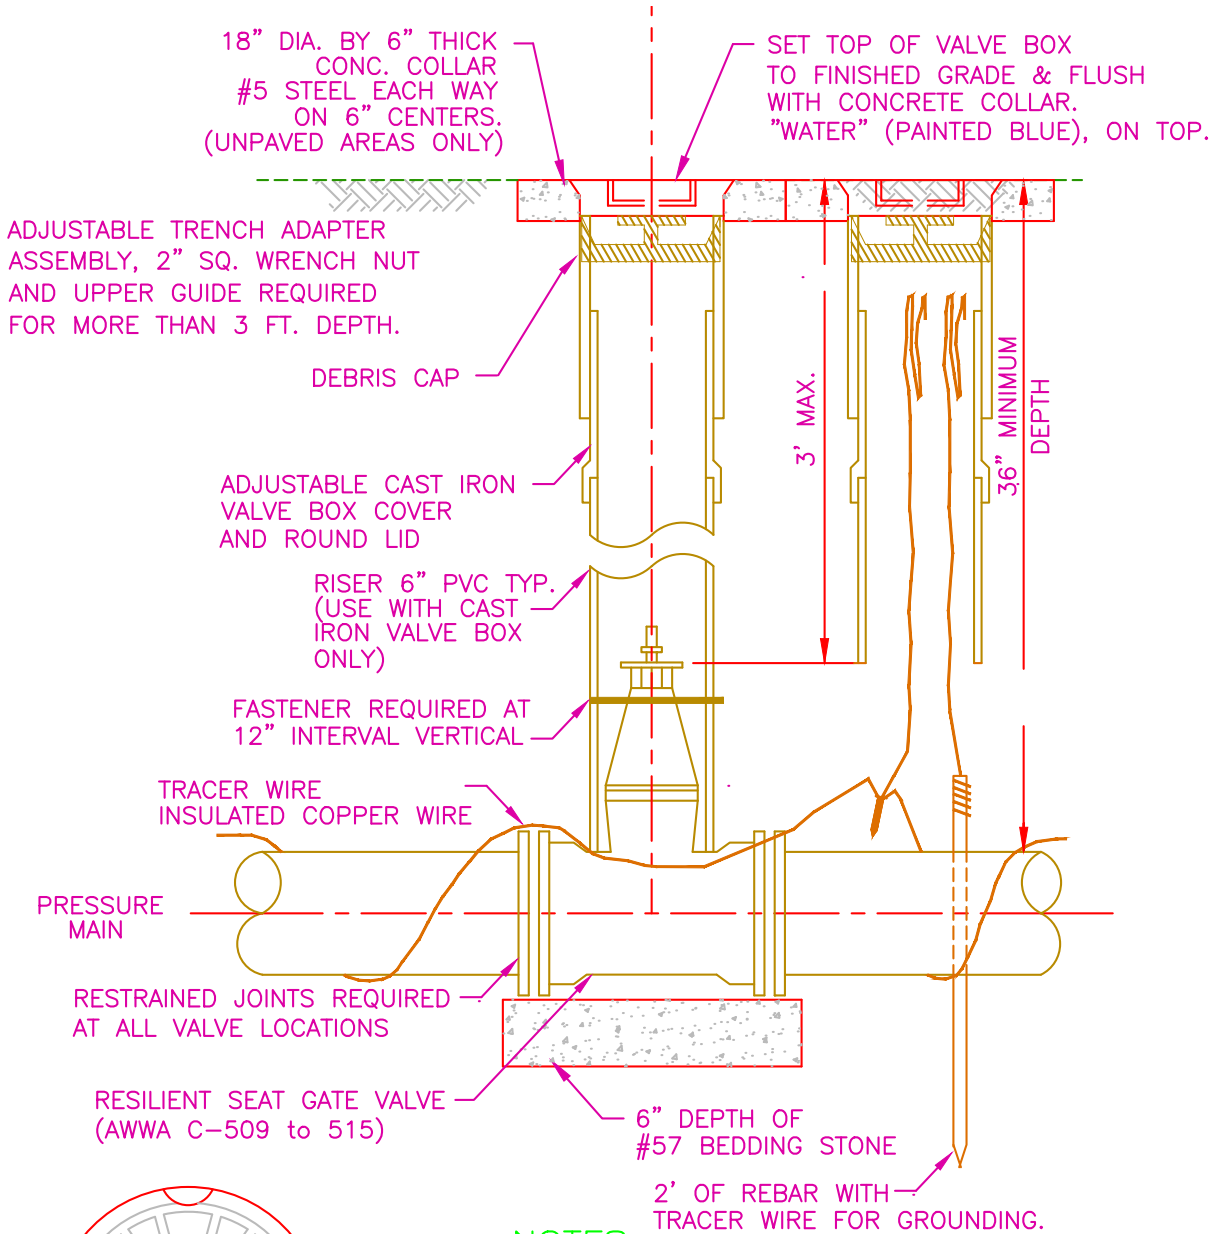 18” DIA. BY 6” THICK
CONC. COLLAR
#5 STEEL EACH WAY
ON 6” CENTERS.
(UNPAVED AREAS ONLY)
SET TOP OF VALVE BOX
TO FINISHED GRADE & FLUSH
WITH CONCRETE COLLAR.
”WATER” (PAINTED BLUE), ON TOP.
ADJUSTABLE TRENCH ADAPTER
ASSEMBLY, 2” SQ. WRENCH NUT
AND UPPER GUIDE REQUIRED
FOR MORE THAN 3 FT. DEPTH.
DEBRIS CAP
3’ MAX.
36” MINIMUM
DEPTH
ADJUSTABLE CAST IRON
VALVE BOX COVER
AND ROUND LID
RISER 6” PVC TYP.
(USE WITH CAST
IRON VALVE BOX
ONLY)
FASTENER REQUIRED AT
12” INTERVAL VERTICAL
TRACER WIRE
INSULATED COPPER WIRE
PRESSURE
MAIN
RESTRAINED JOINTS REQUIRED
AT ALL VALVE LOCATIONS
RESILIENT SEAT GATE VALVE
(AWWA C-509 to 515)
6” DEPTH OF
#57 BEDDING STONE
2’ OF REBAR WITH
TRACER WIRE FOR GROUNDING.
NOTES